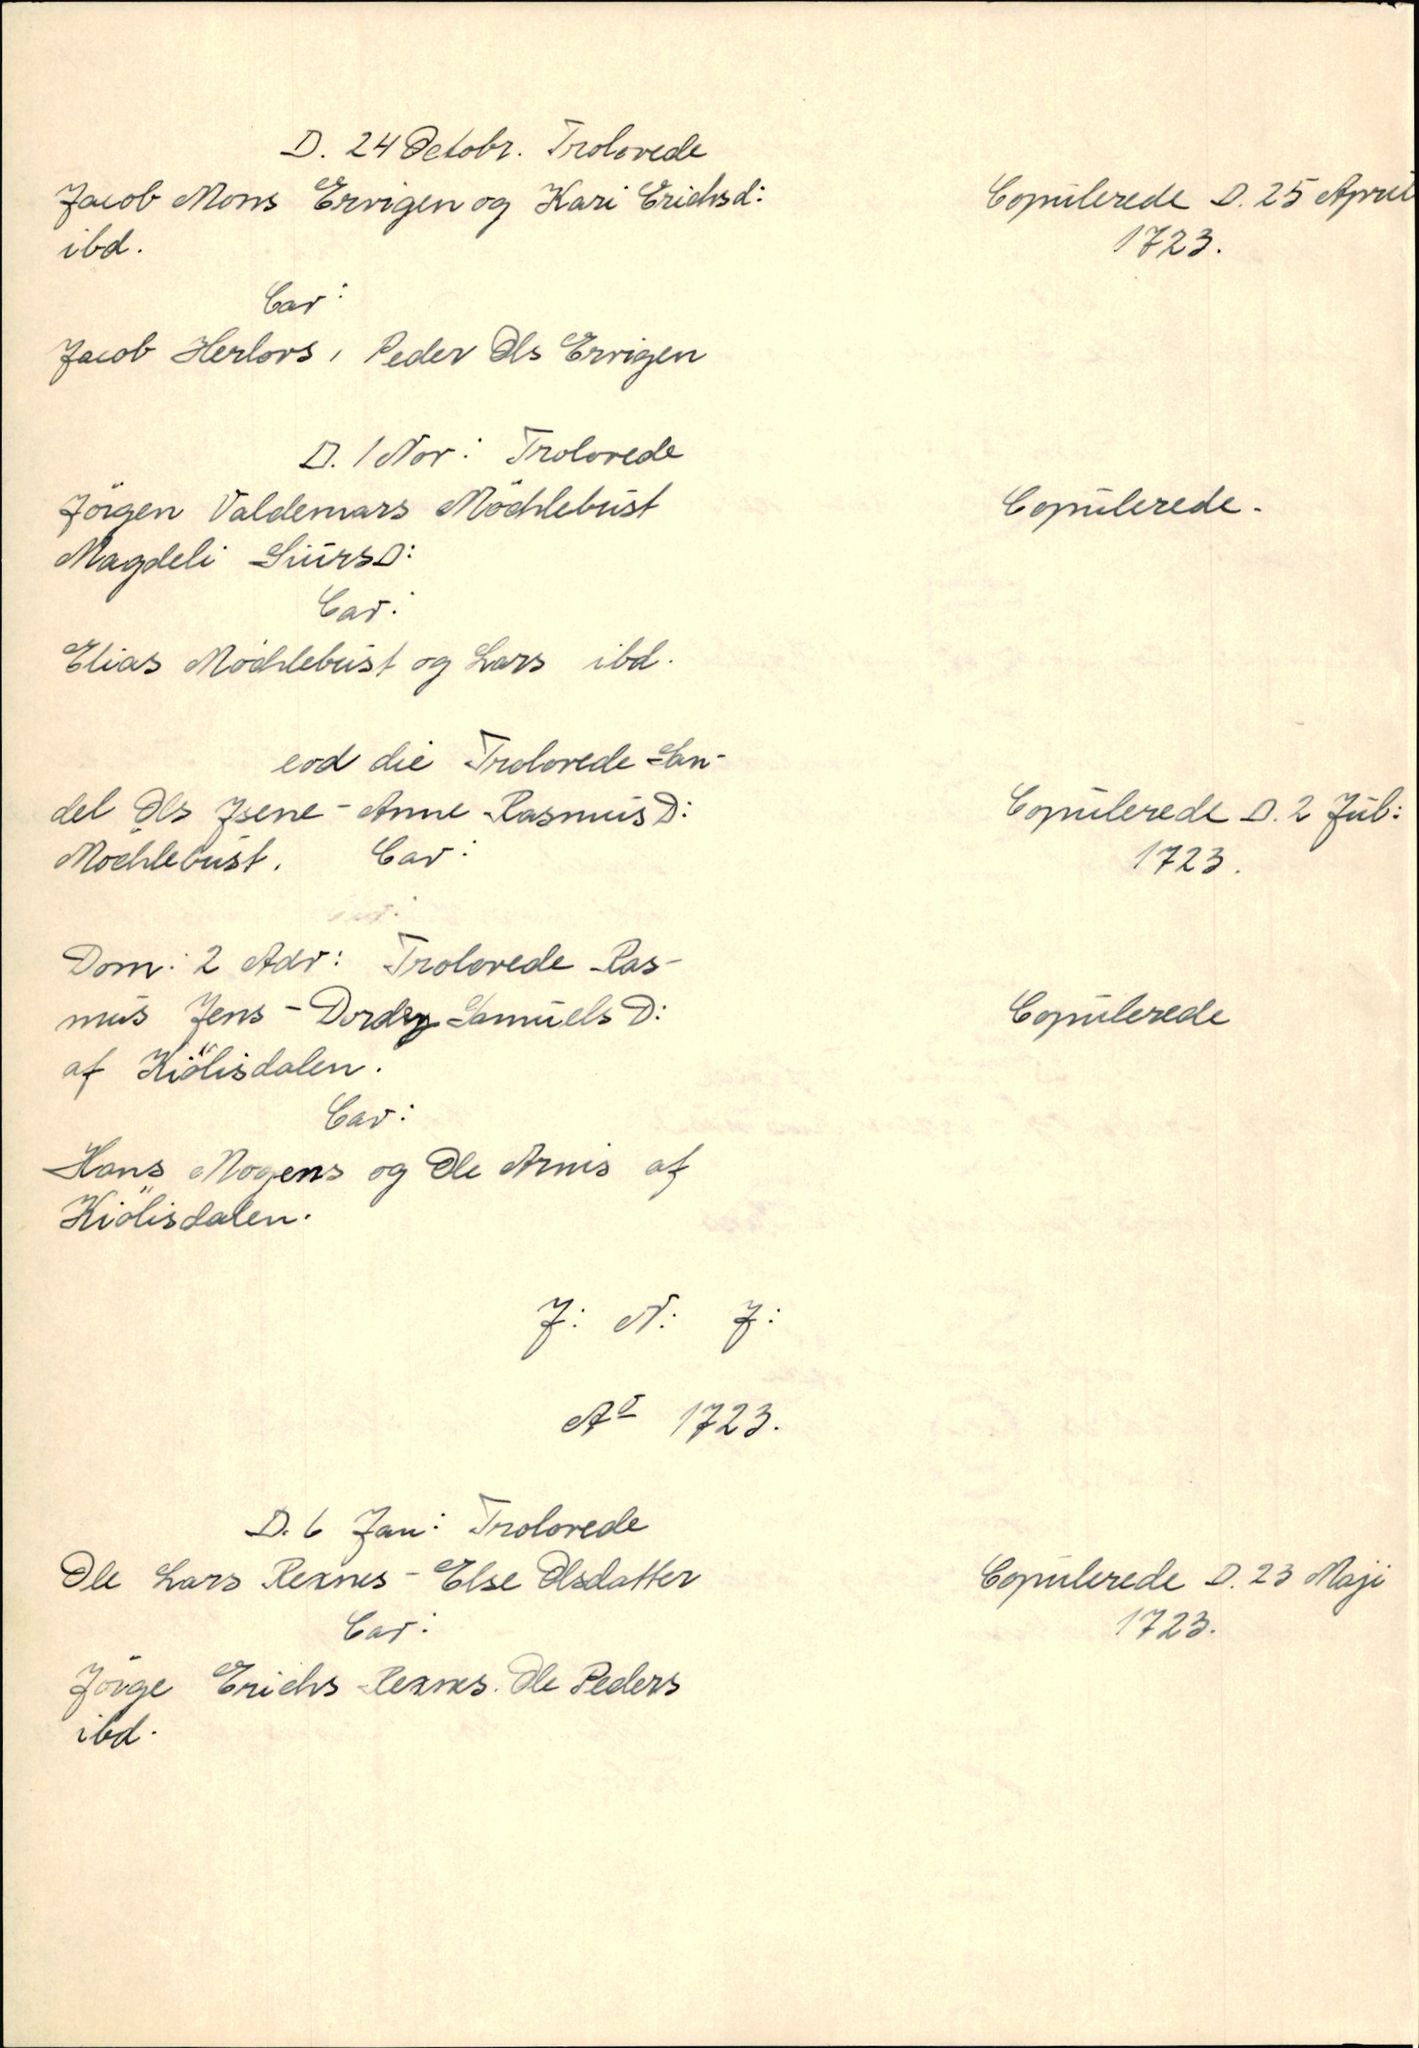 D. 24 Octobr. Trolovede
Jacob Mons Ervigen og Kari Erichsd: Copulerede D. 25 April
ibd. 1723.
Cav:
Jacob Herlovs, Peder Ols Ervigen
D. 1 Nov: Trolovede
Jörgen Valdemars Möchlebust Copulerede.
Magdeli SiursD:
Cav:
Elias Möchlebust og Lars ibd.
eod die Trolovede San-
del Ols Jsene - Anne RasmusD: Copulerede D. 2 Jul:
Möchlebust. Cav: 1723.
Dom: 2 Adv: Trolovede Ras-
mus Jens - Dordy SamuelsD: Copulerede
af Kiölisdalen.
Cav:
Hans Mogens og Ole Arnis af
Kiölisdalen.
J: N: J:
Ao 1723.
D. 6 Jan: Trolovede
Ole Lars Rexnes - Else Olsdatter Copulerede D. 23 Maji
Cav: 1723.
Jörge Erichs Rexnes. Ole Peders
ibd.